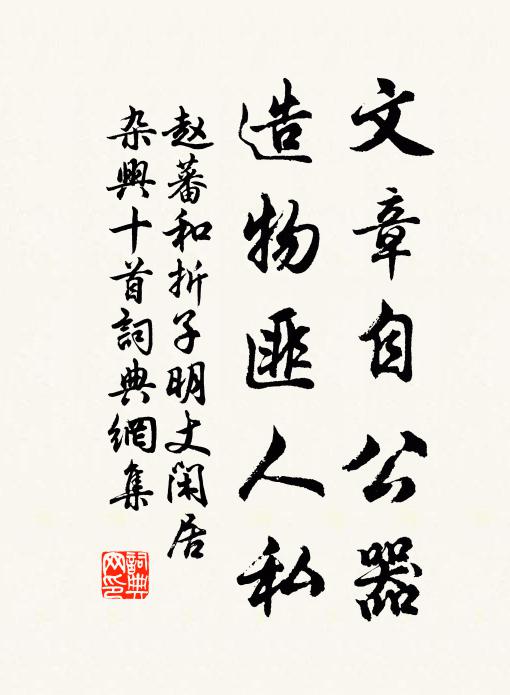 文章自公器
造物匪人私
赵蕃和折子明丈闲居
杂興十首詞典網集
詞典网印